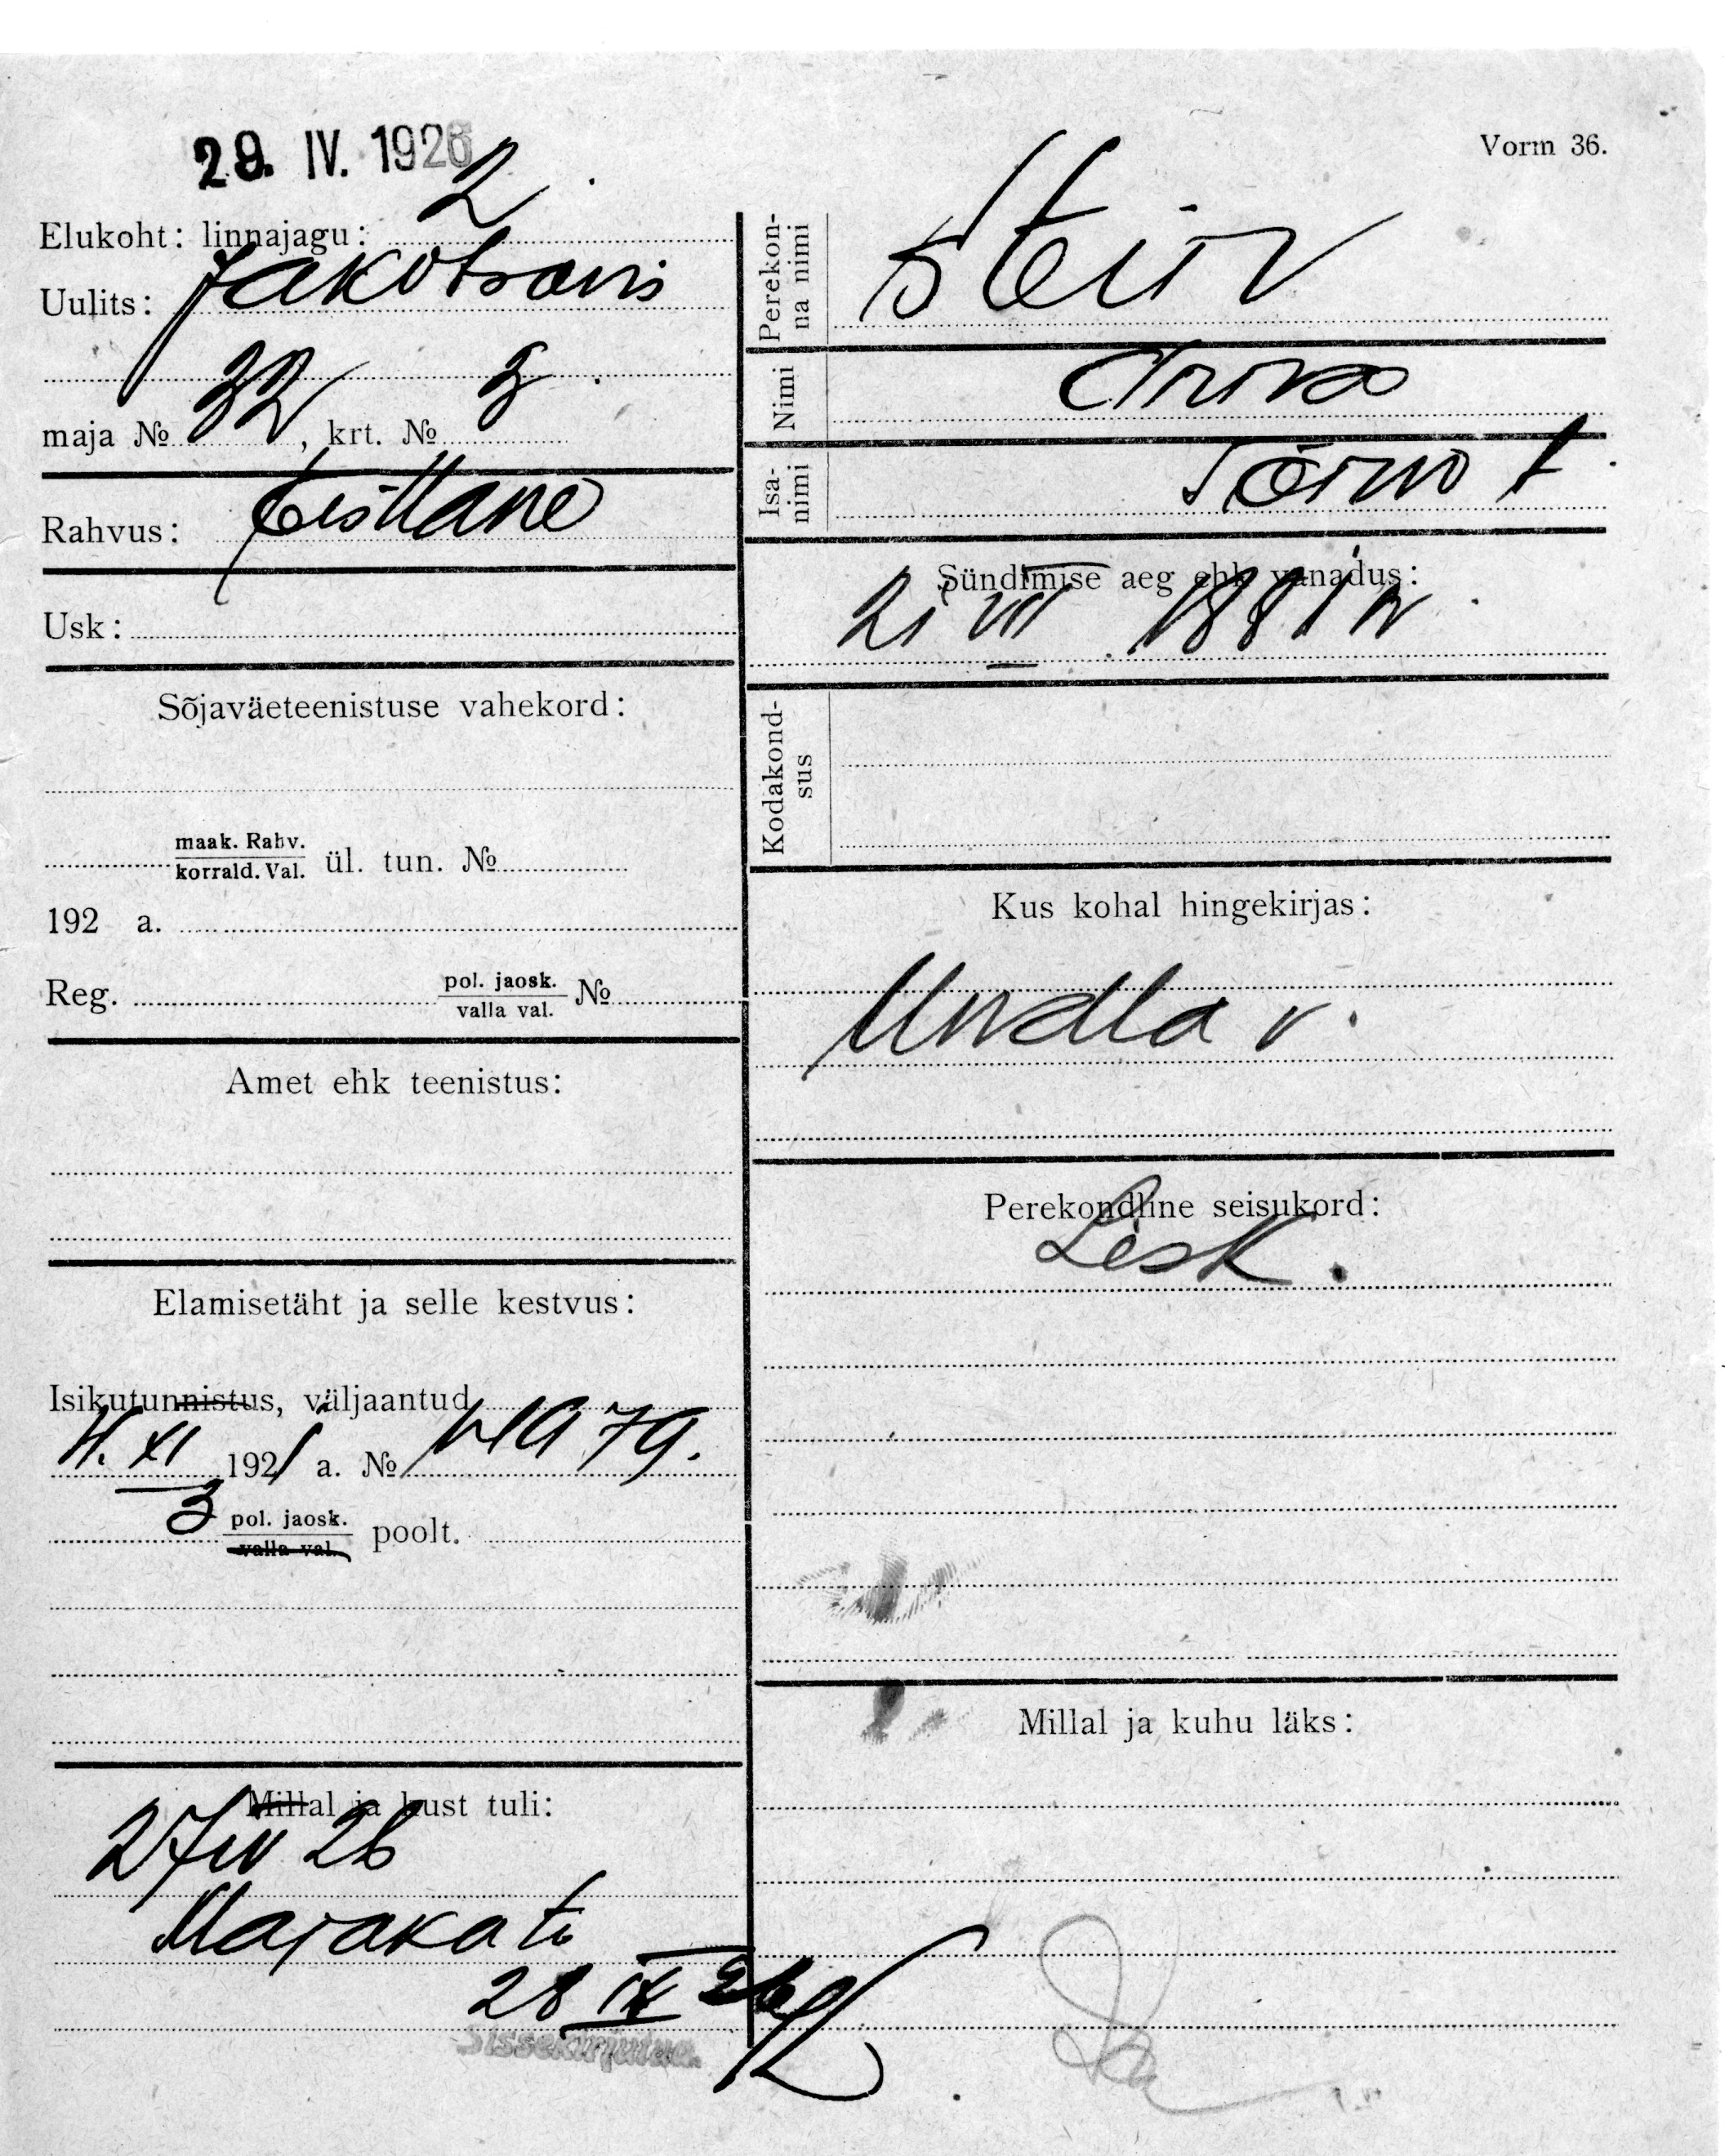 29. IV. 1926
Vorm 36.
Elukoht: linnajagu: 2
Uulits: Jakobsoni
maja № 32, krt. № 3.
Rahvus: Eestlane
Usk:
Sõjaväeteenistuse vahekord:
maak. Rahv.
korrald. Val. ül. tun. №
192 a.
Reg. pol. jaosk. №
valla val.
Amet ehk teenistus:
Elamisetäht ja selle kestvus:
Isikutunnistus, väljaantud
XI 1921 a. №
3 pol. jaosk. poolt.
valla val.
Millal ja kust tuli:
27 IV 26
28 IV 26
Sissekirjutud.
Perekon-
na nimi
Stein
Nimi
Anna
Isa-
nimi
Tõnno t.
Sündimise aeg ehk vanadus:
21 VII 1881
Kodakond-
sus
Kus kohal hingekirjas:
Undla v.
Perekondline seisukord:
Lesk.
Millal ja kuhu läks: